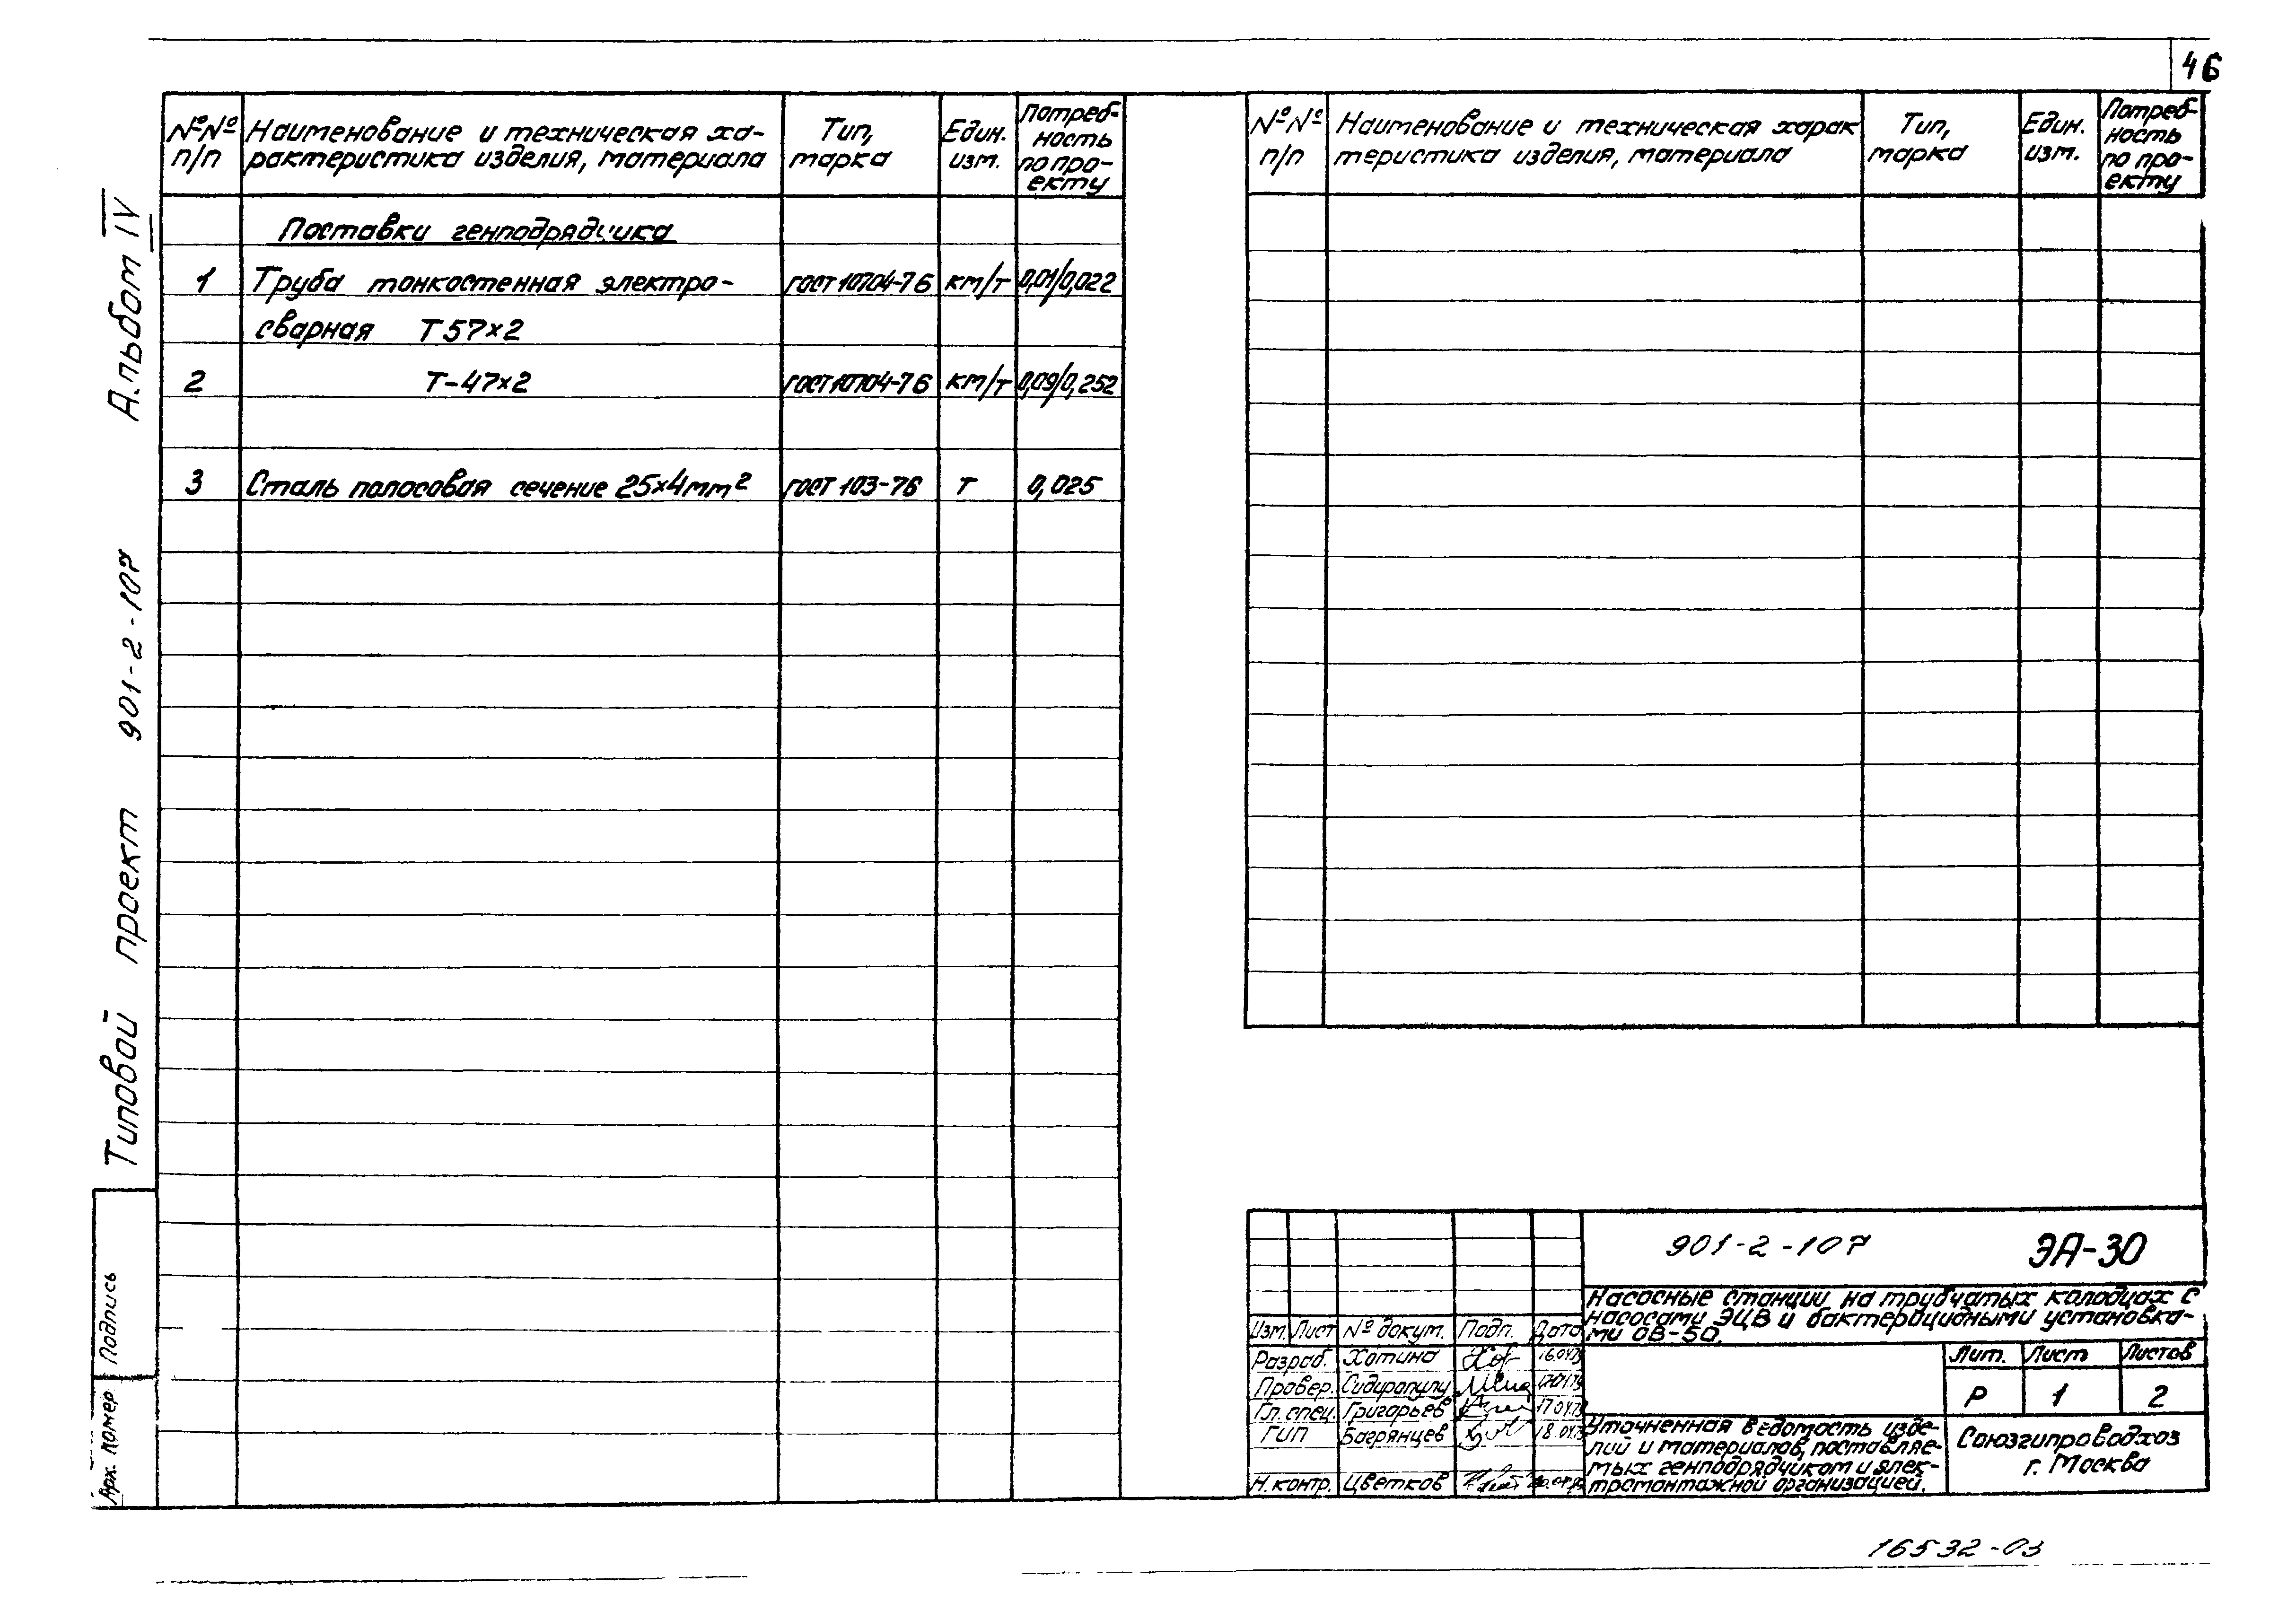 46
Альбом IV
Типовой проект 901-2-107
Подпись
Арх. номер
№№ п/п
Наименование и техническая ха-
рактеристика изделия, материала
Тип,
марка
Един.
изм.
Потреб-
ность
по про-
екту
Поставки генподрядчика
1 Труба тонкостенная электро- ГОСТ 10704-76 км/т 0,01/0,022
сварная Т 57×2
2 Т-47×2 ГОСТ 10704-76 км/т 0,09/0,252
3 Сталь полосовая сечение 25×4мм² ГОСТ 103-76 т 0,025
№№ п/п
Наименование и техническая харак
теристика изделия, материала
Тип,
марка
Един.
изм.
Потреб-
ность
по про-
екту
901-2-107 ЭА-30
Насосные станции на трубчатых колодцах с
насосами ЭЦВ и бактерицидными установка-
ми ОВ-50.
Изм. Лист № докум. Подп. Дата
Разраб. Хотина
Провер. Сидиропулу
Гл. спец. Григорьев
ГИП Багрянцев
Н. контр. Цветков
Лит. Лист Листов
Р 1 2
Уточненная ведомость изде-
лий и материалов, поставляе-
мых генподрядчиком и элек-
тромонтажной организацией.
Союзгипроводхоз
г. Москва
16532-03